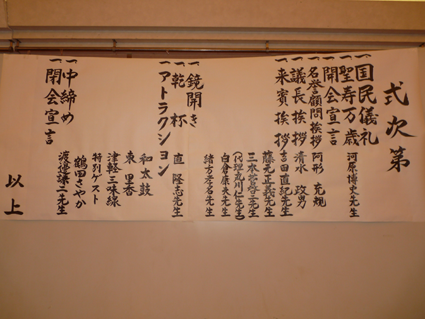 式次第
一国民儀礼
一聖寿万歳 河原博史先生
一開会宣言
一名誉顧問挨拶 阿形充規
一議長挨拶 清水政男
一来賓挨拶 吉田直紀先生
藤元正義先生
(代理丸川仁先生)
白倉康夫先生
緒方孝名先生
一鏡開き
一乾杯 直隆志先生
一アトラクション
和太鼓
東里香
津軽三味線
特別ゲスト
鶴田さやか
一中締め 渡邊謙二先生
一閉会宣言
以上